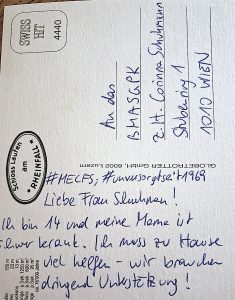 SWISS
HIT
4440
An das
BMASGPK
z.H. Corinna Schuhmann
Stubenring 1
1010 WIEN
GLOBETROTTER GmbH, 6002 Luzern
Schloss Laufen
am
RHEINFALL
#MECFS, #unversorgtseit1969
Liebe Frau Schuhmann!
Ich bin 14 und meine Mama ist
schwer krank. Ich muss zu Hause
viel helfen - wir brauchen
dringend Unterstützung!